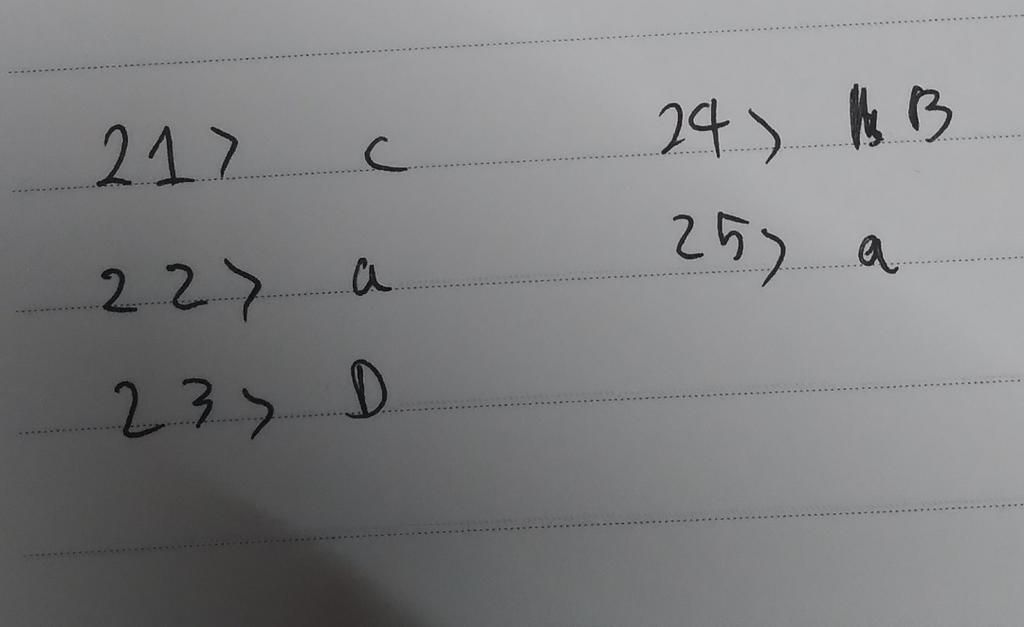 21> c
22> a
23> D
24> B
25> a